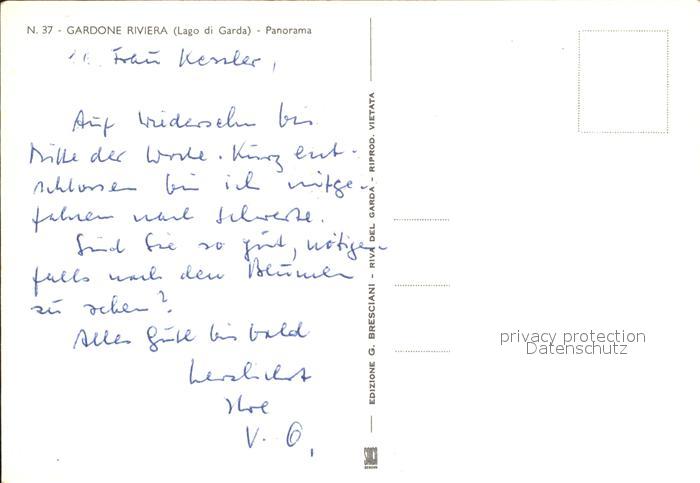 N. 37 - GARDONE RIVIERA (Lago di Garda) - Panorama
Frau Kessler,
Auf Wiedersehn bis
Mitte der Woche. Kurz ent-
schlossen bin ich mitge-
fahren nach Schwerte.
Sind Sie so gut, nötigen-
falls nach den Blumen
zu sehen?
Alles Gute bis bald
herzlichst
Ihre
V. O.
EDIZIONE G. BRESCIANI - RIVA DEL GARDA - RIPROD. VIETATA
privacy protection
Datenschutz